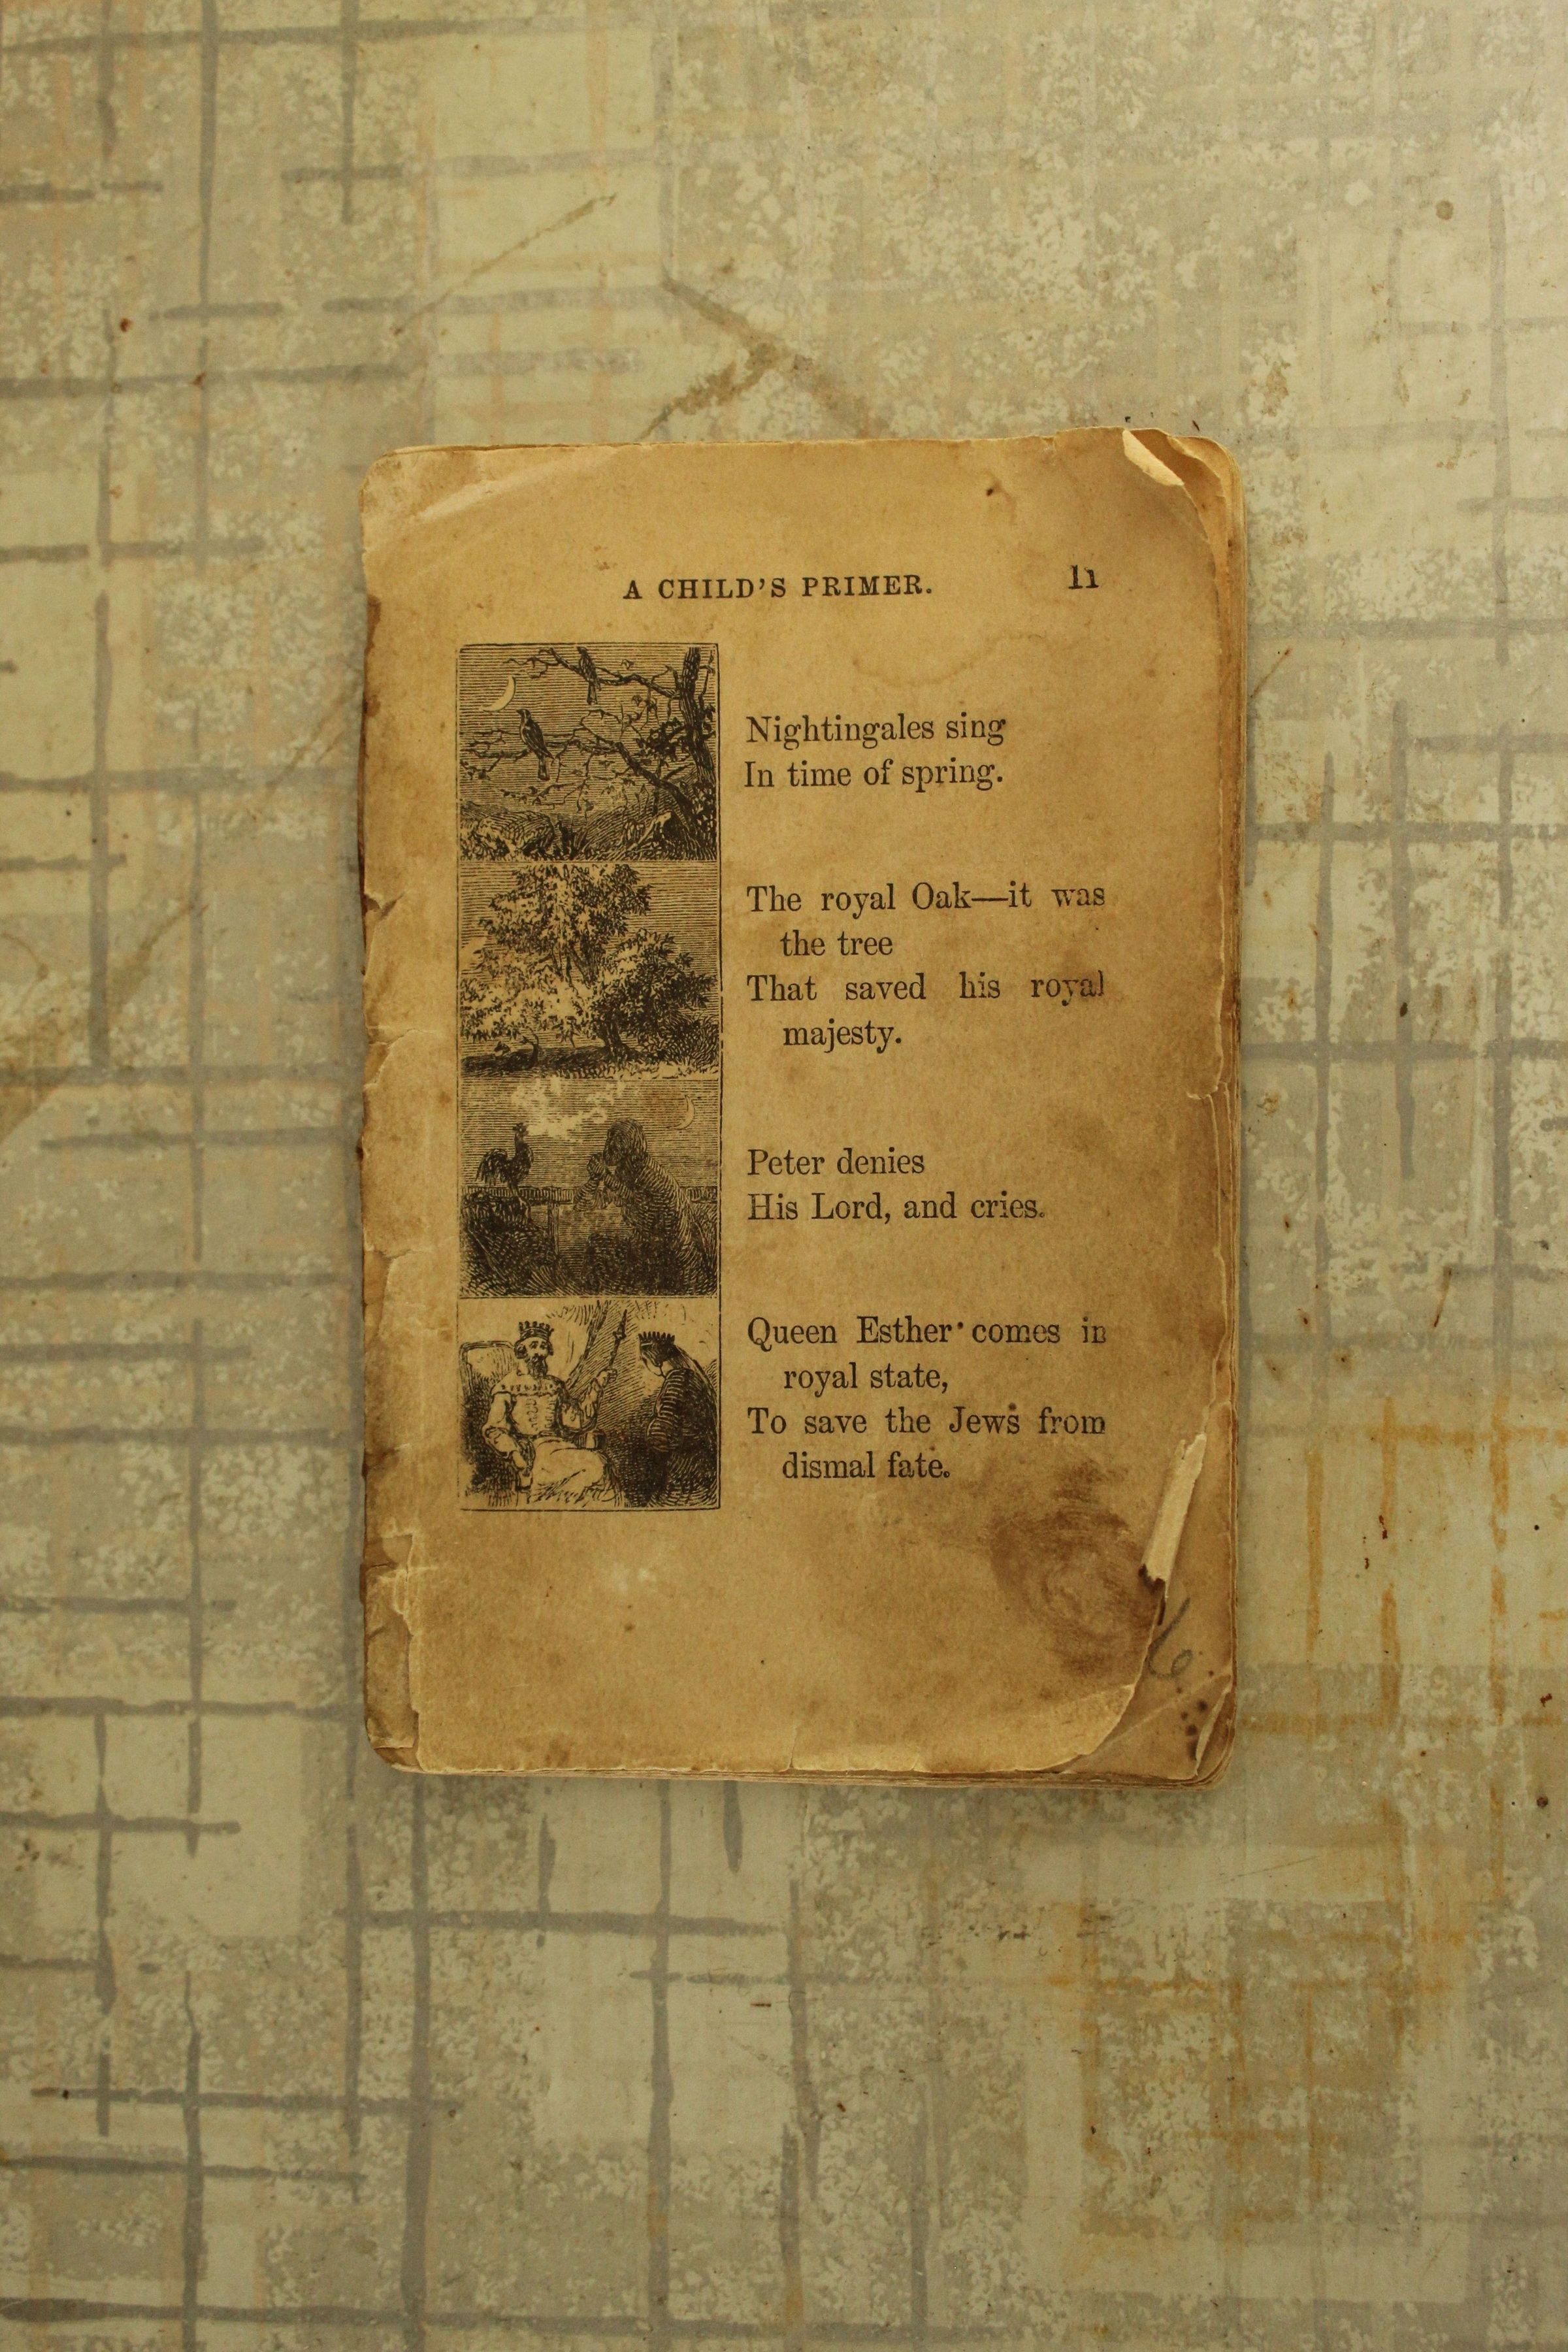 A CHILD'S PRIMER. 11
Nightingales sing
In time of spring.
The royal Oak—it was
the tree
That saved his royal
majesty.
Peter denies
His Lord, and cries.
Queen Esther comes in
royal state,
To save the Jews from
dismal fate.